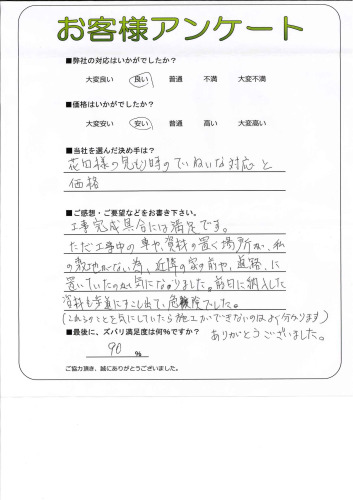 お客様アンケート
■弊社の対応はいかがでしたか?
大変良い 良い 普通 不満 大変不満
■価格はいかがでしたか?
大変安い 安い 普通 高い 大変高い
■当社を選んだ決め手は?
花田様の見もり時のていねいな対応と
価格
■ご感想・ご要望などをお書き下さい。
工事完成具合には満足です。
ただ工事中の車や資料の置く場所が、私
の敷地がない為、近隣の家の前や、道路、に
置いていたのが気になりました。前日に納入した
資料も歩道にすこし出て、危険でした。
(これらのことを気にしていたら施工ができないのはよく分かります)
■最後に、ズバリ満足度は何%ですか?
ありがとうございました。
90 %
ご協力頂き、誠にありがとうございました。